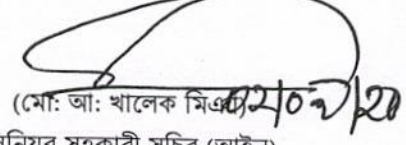 (মো: আ: খালেক মিঞা) ০২/০২/২০
সিনিয়র সহকারী সচিব (আইন)